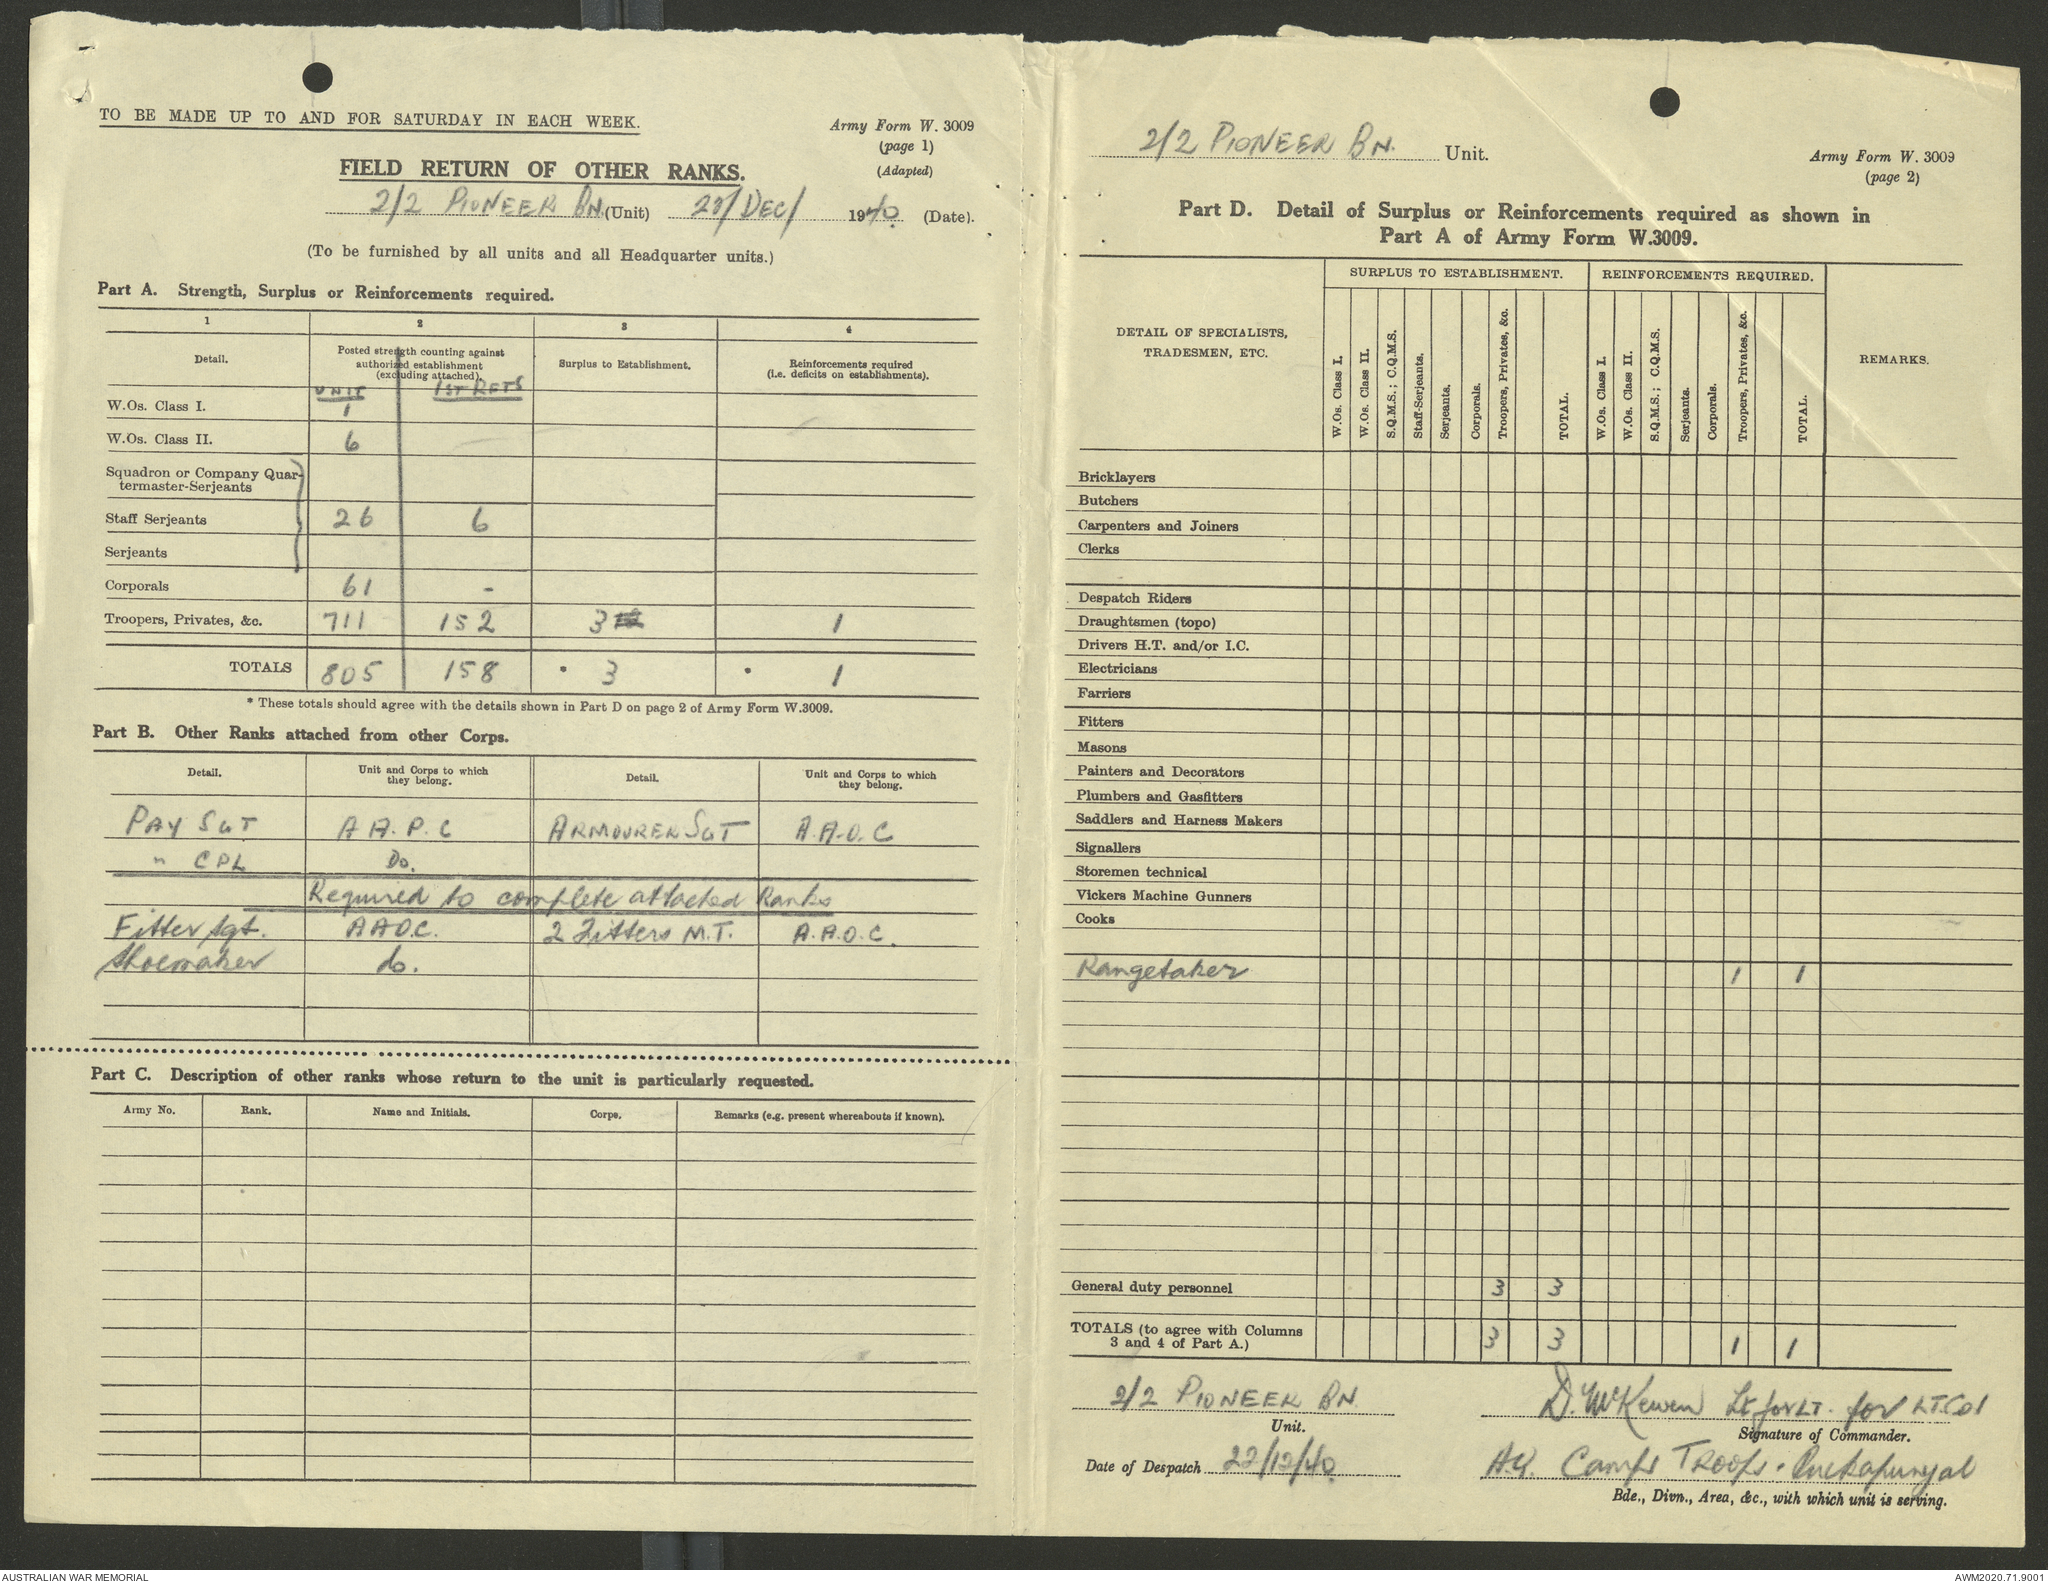 TO BE MADE UP TO AND FOR SATURDAY IN EACH WEEK.
Army Form W. 3009
(page 1)
(Adapted)
FIELD RETURN OF OTHER RANKS.
2/2 PIONEER BN. (Unit) DEC/ 1940. (Date).
(To be furnished by all units and all Headquarter units.)
Part A. Strength, Surplus or Reinforcements required.
1 2 3 4
Detail.
Posted strength counting against
authorized establishment
(excluding attached).
Surplus to Establishment.
Reinforcements required
(i.e. deficits on establishments).
UNIT 1ST RFTS
W.Os. Class I. 1
W.Os. Class II. 6
Squadron or Company Quar-
termaster-Serjeants
Staff Serjeants 26 6
Serjeants
Corporals 61 -
Troopers, Privates, &c. 711 152 3 1
TOTALS 805 158 * 3 * 1
* These totals should agree with the details shown in Part D on page 2 of Army Form W.3009.
Part B. Other Ranks attached from other Corps.
Detail. Unit and Corps to which they belong. Detail. Unit and Corps to which they belong.
PAY SGT A A. P. C ARMOURER SGT A.A.O.C
" CPL Do.
Required to complete attached Ranks
Fitter Sgt. A A O.C. 2 Fitters M.T. A.A.O.C.
Shoemaker do.
Part C. Description of other ranks whose return to the unit is particularly requested.
Army No. Rank. Name and Initials. Corps. Remarks (e.g. present whereabouts if known).
2/2 PIONEER BN. Unit.
Army Form W. 3009
(page 2)
Part D. Detail of Surplus or Reinforcements required as shown in
Part A of Army Form W.3009.
SURPLUS TO ESTABLISHMENT. REINFORCEMENTS REQUIRED.
DETAIL OF SPECIALISTS,
TRADESMEN, ETC.
W.Os. Class I.
W.Os. Class II.
S.Q.M.S.; C.Q.M.S.
Staff-Serjeants.
Serjeants.
Corporals.
Troopers, Privates, &c.
TOTAL.
W.Os. Class I.
W.Os. Class II.
S.Q.M.S.; C.Q.M.S.
Serjeants.
Corporals.
Troopers, Privates, &c.
TOTAL.
REMARKS.
Bricklayers
Butchers
Carpenters and Joiners
Clerks
Despatch Riders
Draughtsmen (topo)
Drivers H.T. and/or I.C.
Electricians
Farriers
Fitters
Masons
Painters and Decorators
Plumbers and Gasfitters
Saddlers and Harness Makers
Signallers
Storemen technical
Vickers Machine Gunners
Cooks
Rangetaker 1 1
General duty personnel 3 3
TOTALS (to agree with Columns
3 and 4 of Part A.) 3 3 1 1
2/2 PIONEER BN.
Unit.
D. McKewen Lt for LT. for LT. Col
Signature of Commander.
Date of Despatch 22/12/40.
H.Q. Camps Troops. Puckapunyal
Bde., Divn., Area, &c., with which unit is serving.
AUSTRALIAN WAR MEMORIAL
AWM2020.71.9001